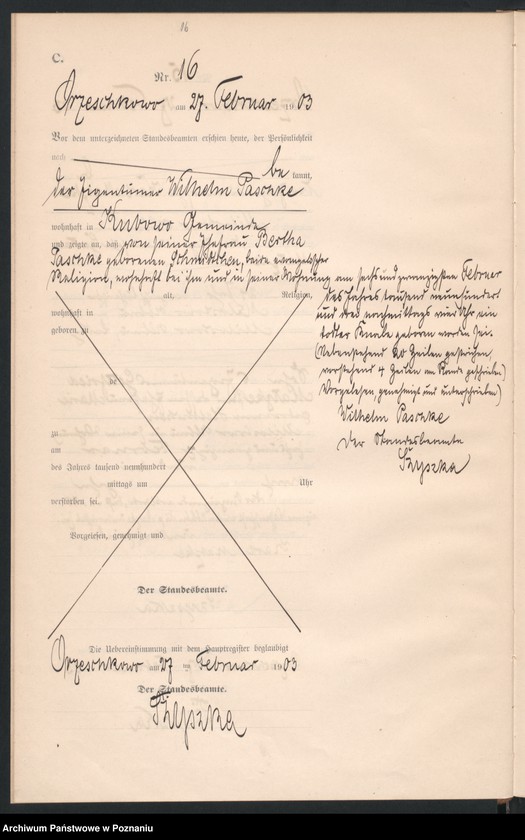 16
C.
Nr. 16
Orzeschkowo am 27. Februar 1903
Vor dem unterzeichneten Standesbeamten erschien heute, der Persönlichkeit
nach
be kannt,
der Eigentümer Wilhelm Paschke
wohnhaft in Kubowo Gemeinde
und zeigte an, daß von seiner Ehefrau Bertha
Paschke geborenen Schmidtchen, beide evangelischer
Religion, wohnhaft bei ihm und in seiner Wohnung am sechsundzwanzigsten Februar
des Jahres tausend neunhundert
und drei nachmittags vier Uhr ein
todter Knabe geboren worden sei.
(Nebenstehend 20 Zeilen gestrichen,
vorstehend 4 Zeilen am Rande geschrieben)
Vorgelesen, genehmigt und unterschrieben)
Wilhelm Paschke
Der Standesbeamte
Szyszka
alt, Religion,
wohnhaft in
geboren zu
de
zu
am
des Jahres tausend neunhundert
mittags um Uhr
verstorben sei.
Vorgelesen, genehmigt und
Der Standesbeamte.
Die Uebereinstimmung mit dem Hauptregister beglaubigt
Orzeschkowo am 27 ten Februar 1903
Der Standesbeamte.
Szyszka
Archiwum Państwowe w Poznaniu